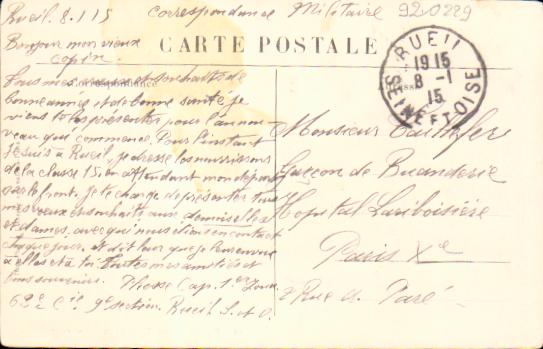 Rueil. 8.1.15 Correspondance Militaire 920229
CARTE POSTALE
Bonjour mon vieux
copin.
Tous mes vœux et souhaits de
bonne année et de bonne santé je
viens te les présenter pour l'an nou-
veau que commence. Pour l'instant
Je suis a Rueil, je dresse les nourrissons
de la classe 15, en attendant mon départ
sur le front. Je te charge de présenter tous
mes vœux et souhaits aux demoiselles
et dames, avec qui nous étions en contact
chaque jour. et dit leur que je leur envoie
a elles et a toi toutes mes amitiés et
bons souvenirs. Cap. 1er
Cie 9e section. Rueil S. et O.
RUEIL
19 15
8 - 1
15
SEINE ET OISE
Monsieur
Garçon de Buanderie
Hopital Lariboisière
Paris Xe
2 Rue A. Paré